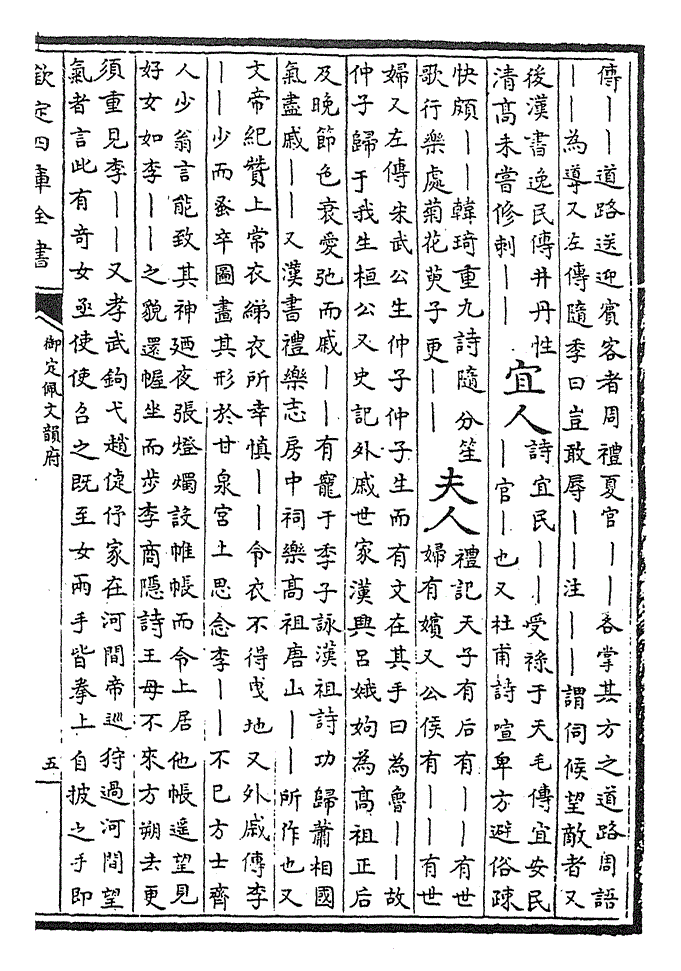 傳丨丨道路送迎賓客者周禮夏官丨丨各掌其方之道路周語
丨丨為導又左傳隨季曰豈敢辱丨丨注丨丨謂伺候望敵者又
後漢書逸民傳井丹性
清高未嘗修刺丨丨
宜人
詩宜民丨丨受祿于天毛傳宜安民
丨官丨也又杜甫詩喧卑方避俗疎
快頗丨丨韓琦重九詩隨分笙
歌行樂處菊花萸子更丨丨
夫人
禮記天子有后有丨丨有世
婦有嬪又公侯有丨丨有世
婦又左傳宋武公生仲子仲子生而有文在其手曰為魯丨丨故
仲子歸于我生桓公又史記外戚世家漢興呂娥姁為高祖正后
及晚節色衰愛弛而戚丨丨有寵于季子詠漢祖詩功歸蕭相國
氣盡戚丨丨又漢書禮樂志房中祠樂高祖唐山丨丨所作也又
文帝紀贊上常衣綈衣所幸慎丨丨令衣不得曳地又外戚傳李
丨丨少而蚤卒圖畫其形於甘泉宮上思念李丨丨不已方士齊
人少翁言能致其神廼夜張燈燭設帷帳而令上居他帳遥望見
好女如李丨丨之貌還幄坐而步李商隱詩王母不來方朔去更
須重見李丨丨又孝武鉤弋趙倢伃家在河間帝巡狩過河間望
氣者言此有奇女亟使使召之既至女兩手皆拳上自披之手即
欽定四庫全書
御定佩文韻府
五